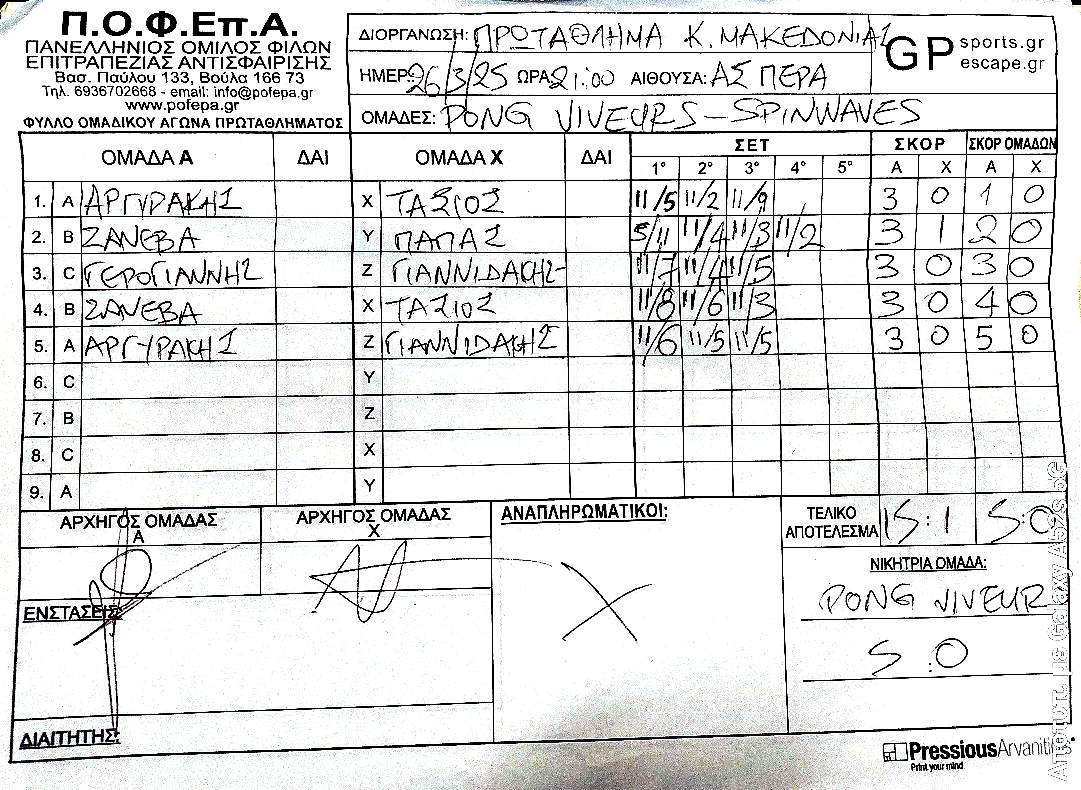 Π.Ο.Φ.Επ.Α.
ΠΑΝΕΛΛΗΝΙΟΣ ΟΜΙΛΟΣ ΦΙΛΩΝ
ΕΠΙΤΡΑΠΕΖΙΑΣ ΑΝΤΙΣΦΑΙΡΙΣΗΣ
Βασ. Παύλου 133, Βούλα 166 73
Τηλ. 6936702668 - email: info@pofepa.gr
www.pofepa.gr
ΦΥΛΛΟ ΟΜΑΔΙΚΟΥ ΑΓΩΝΑ ΠΡΩΤΑΘΛΗΜΑΤΟΣ
ΔΙΟΡΓΑΝΩΣΗ: ΠΡΩΤΑΘΛΗΜΑ Κ. ΜΑΚΕΔΟΝΙΑΣ
GP sports.gr
escape.gr
ΗΜΕΡ: 26/3/25 ΩΡΑ: 21:00 ΑΙΘΟΥΣΑ: ΑΣ ΠΕΡΑ
ΟΜΑΔΕΣ: PONG VIVEURS - SPINWAVES
ΟΜΑΔΑ Α ΔΑΙ ΟΜΑΔΑ Χ ΔΑΙ ΣΕΤ ΣΚΟΡ ΣΚΟΡ ΟΜΑΔΩΝ
1° 2° 3° 4° 5° Α Χ Α Χ
1. A ΑΡΓΥΡΑΚΗΣ X ΤΑΣΙΟΣ 11/5 11/2 11/9 3 0 1 0
2. B ΖΑΝΕΒΑ Y ΠΑΠΑΣ 5/11 11/4 11/3 11/2 3 1 2 0
3. C ΓΕΡΟΓΙΑΝΝΗΣ Z ΓΙΑΝΝΙΔΑΚΗΣ 11/7 11/4 11/5 3 0 3 0
4. B ΖΑΝΕΒΑ X ΤΑΣΙΟΣ 11/8 11/6 11/3 3 0 4 0
5. A ΑΡΓΥΡΑΚΗΣ Z ΓΙΑΝΝΙΔΑΚΗΣ 11/6 11/5 11/5 3 0 5 0
6. C Y
7. B Z
8. C X
9. A Y
ΑΡΧΗΓΟΣ ΟΜΑΔΑΣ Α ΑΡΧΗΓΟΣ ΟΜΑΔΑΣ Χ ΑΝΑΠΛΗΡΩΜΑΤΙΚΟΙ: ΤΕΛΙΚΟ ΑΠΟΤΕΛΕΣΜΑ 15:1 5:0
ΝΙΚΗΤΡΙΑ ΟΜΑΔΑ:
PONG VIVEUR
5:0
ΕΝΣΤΑΣΕΙΣ:
ΔΙΑΙΤΗΤΗΣ:
Pressious Arvanitidis
Print your mind